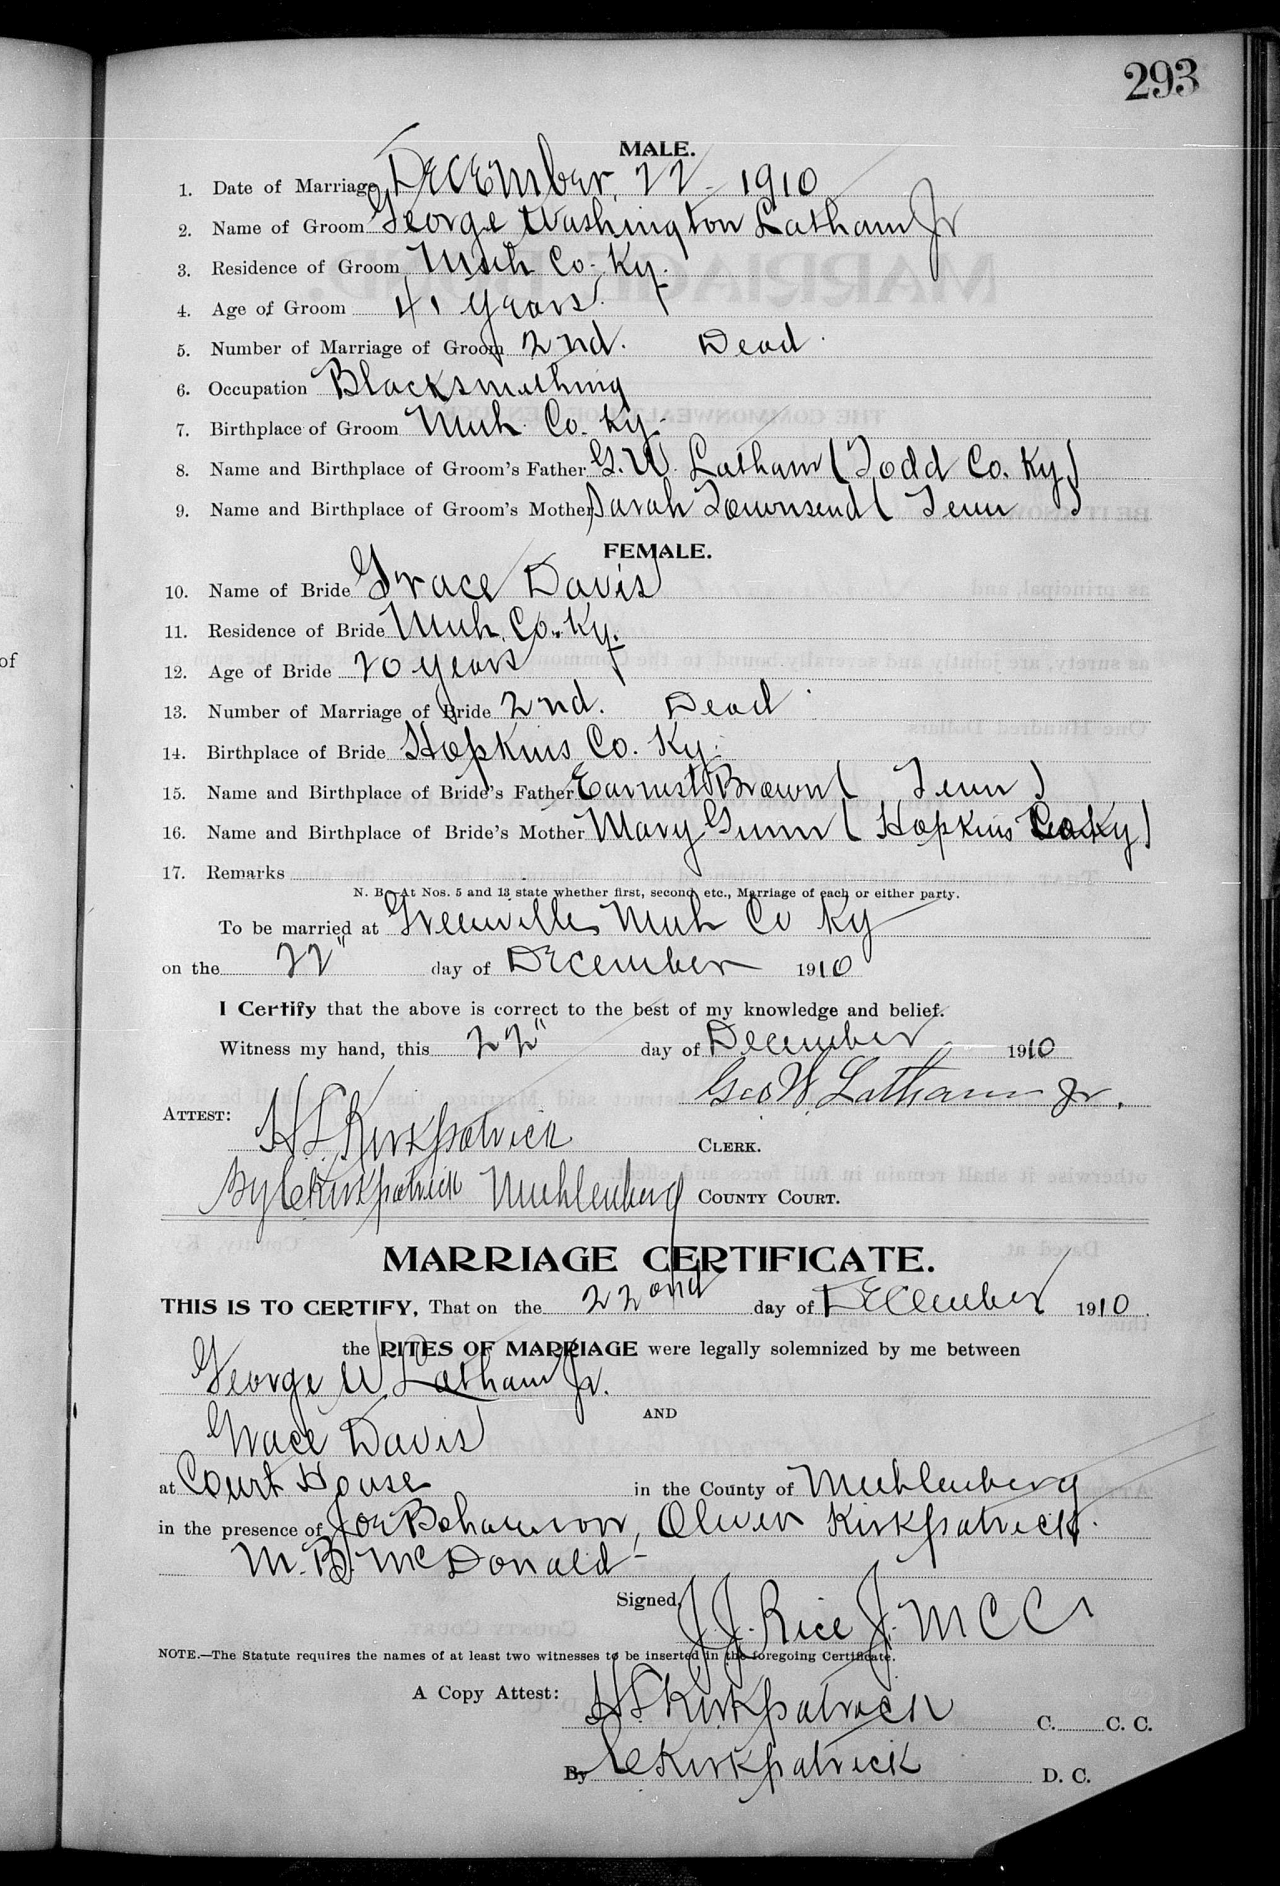 293
MALE.
1. Date of Marriage December 22 1910
2. Name of Groom George Washington Latham Jr
3. Residence of Groom Muh Co. Ky.
4. Age of Groom 41 years.
5. Number of Marriage of Groom 2nd. Dead
6. Occupation Blacksmithing
7. Birthplace of Groom Muh Co. Ky.
8. Name and Birthplace of Groom's Father G. W. Latham (Todd Co. Ky)
9. Name and Birthplace of Groom's Mother Sarah Townsend (Tenn)
FEMALE.
10. Name of Bride Grace Davis
11. Residence of Bride Muh. Co. Ky.
12. Age of Bride 20 years
13. Number of Marriage of Bride 2nd. Dead
14. Birthplace of Bride Hopkins Co. Ky.
15. Name and Birthplace of Bride's Father Earnest Brown (Tenn)
16. Name and Birthplace of Bride's Mother Mary Gunn (Hopkins Co Ky)
17. Remarks
N. B.—At Nos. 5 and 13 state whether first, second, etc., Marriage of each or either party.
To be married at Greenville, Muh Co Ky
on the 22" day of December 1910
I Certify that the above is correct to the best of my knowledge and belief.
Witness my hand, this 22" day of December 1910
Geo W. Latham Jr.
ATTEST: H L Kirkpatrick CLERK.
By C Kirkpatrick Muhlenberg COUNTY COURT.
MARRIAGE CERTIFICATE.
THIS IS TO CERTIFY, That on the 22ond day of December 1910.
the RITES OF MARRIAGE were legally solemnized by me between
George W Latham Jr.
AND
Grace Davis
at Court House in the County of Muhlenberg
in the presence of Joe Oliver Kirkpatrick.
M. B. McDonald
Signed, J. J. Rice J. M C C
NOTE.—The Statute requires the names of at least two witnesses to be inserted in the foregoing Certificate.
A Copy Attest: H L Kirkpatrick C. C. C.
By C Kirkpatrick D. C.
of